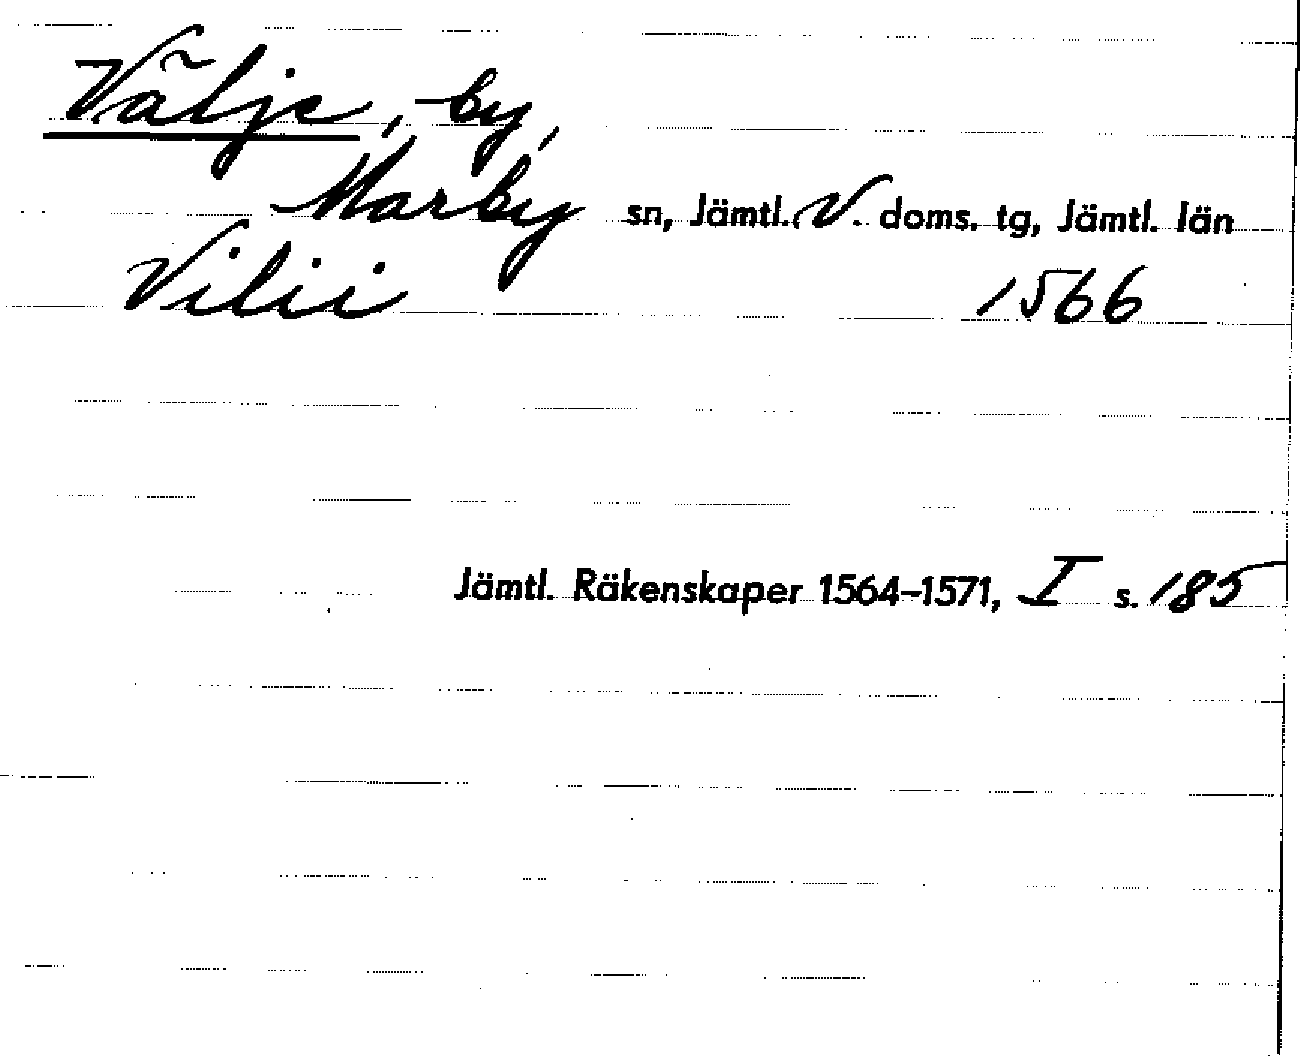 Välje, by,
Marby sn, Jämtl. V. doms. tg, Jämtl. län
Vilii 1566
Jämtl. Räkenskaper 1564–1571, I s. 185